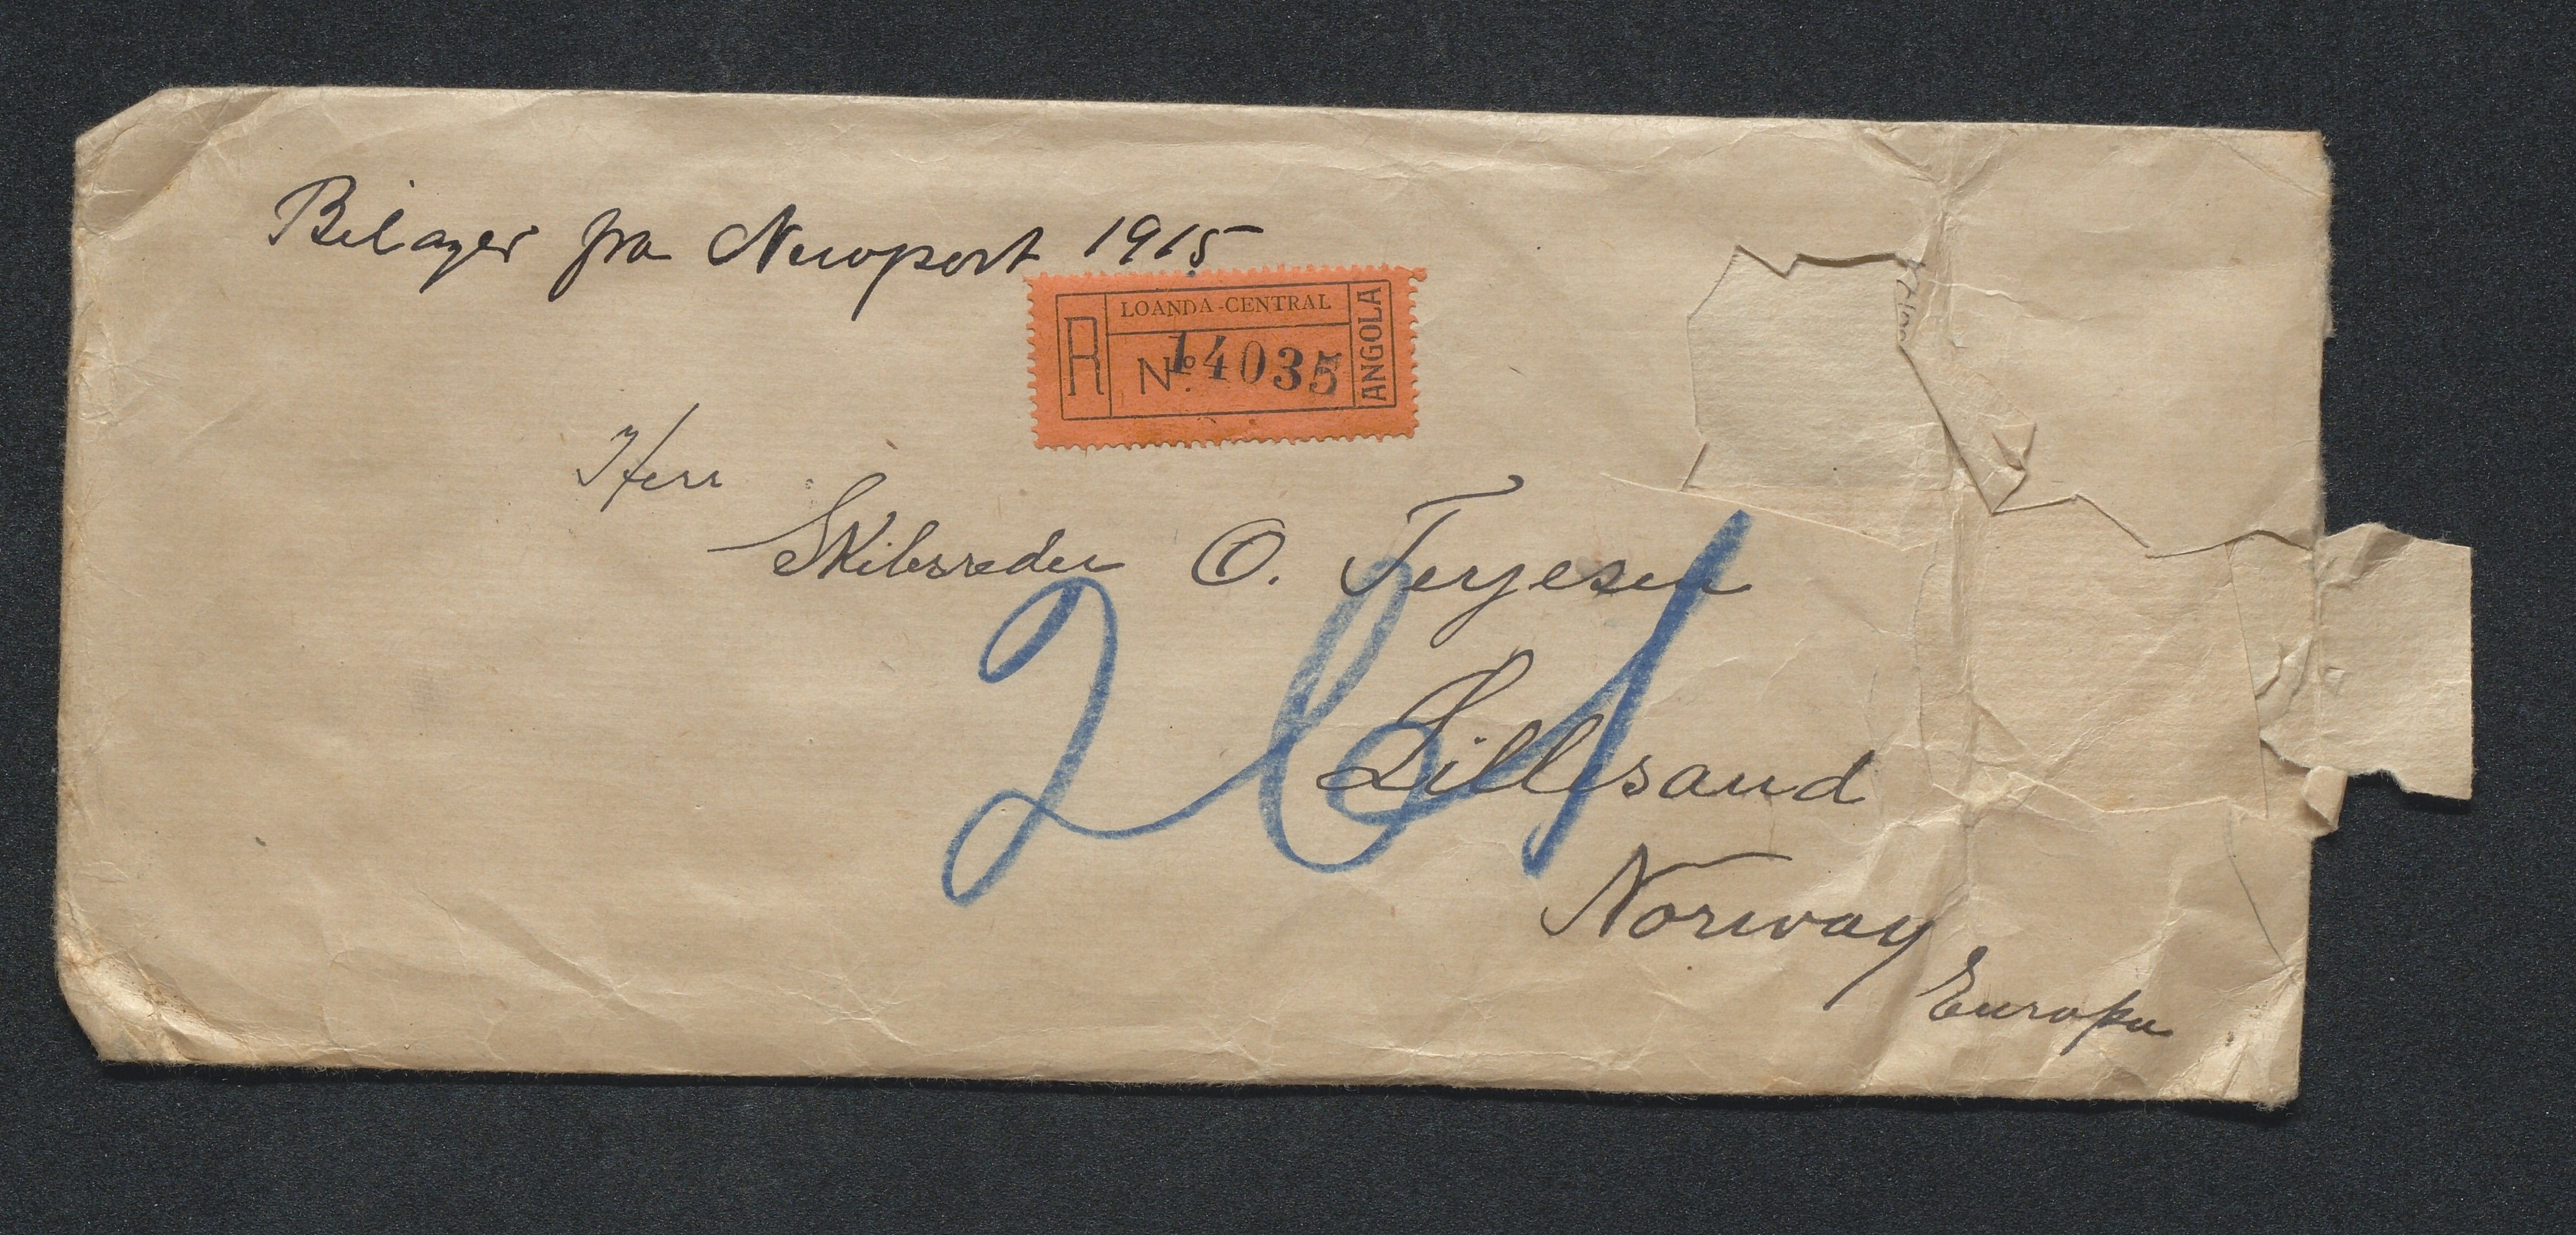 Bilager fra Newport 1915
R
LOANDA-CENTRAL
Nº 14035
ANGOLA
Herr
Skibsreder O. Terjesen
261
Lillesand
Norway
Europa